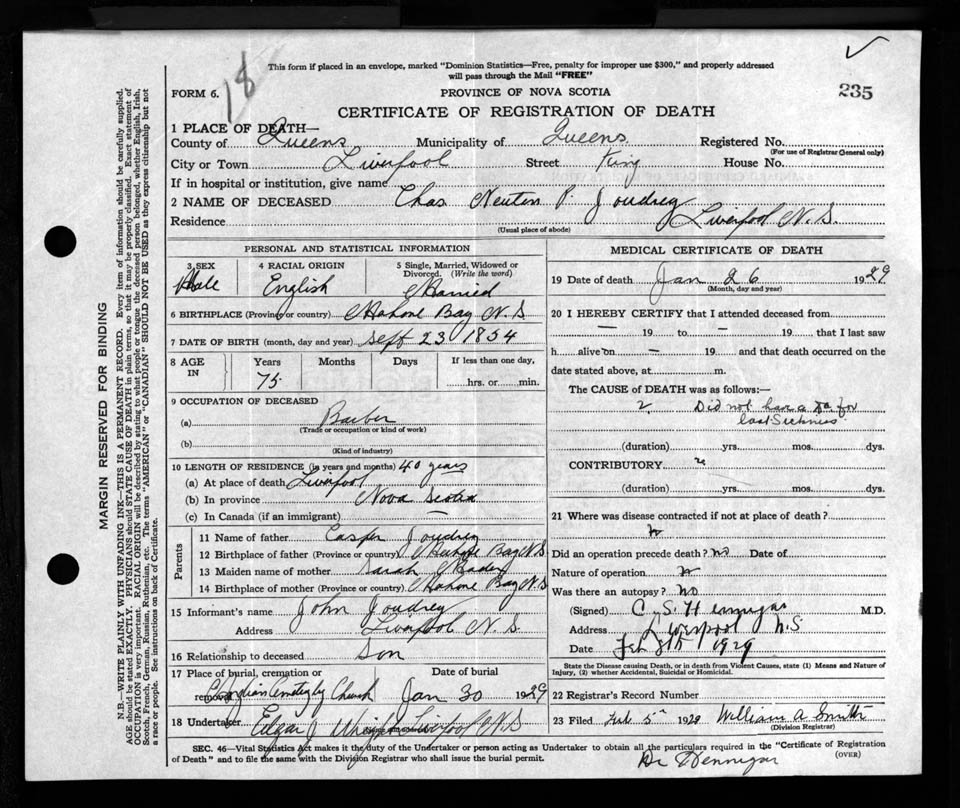 18
✓
This form if placed in an envelope, marked "Dominion Statistics—Free, penalty for improper use $300," and properly addressed
will pass through the Mail "FREE"
FORM 6.
PROVINCE OF NOVA SCOTIA
235
CERTIFICATE OF REGISTRATION OF DEATH
1 PLACE OF DEATH—
County of Queens Municipality of Queens Registered No.
(For use of Registrar General only)
City or Town Liverpool Street King House No.
If in hospital or institution, give name
2 NAME OF DECEASED Chas Neuten P. Joudrey
Residence Liverpool N.S.
(Usual place of abode)
PERSONAL AND STATISTICAL INFORMATION
3 SEX 4 RACIAL ORIGIN 5 Single, Married, Widowed or
Divorced. (Write the word)
Male English Married
6 BIRTHPLACE (Province or country) Mahone Bay N.S
7 DATE OF BIRTH (month, day and year) Sept 23 1854
8 AGE IN Years Months Days If less than one day,
75 hrs. or min.
9 OCCUPATION OF DECEASED
(a) Barber
(Trade or occupation or kind of work)
(b)
(Kind of industry)
10 LENGTH OF RESIDENCE (in years and months) 40 years
(a) At place of death Liverpool
(b) In province Nova Scotia
(c) In Canada (if an immigrant) —
Parents
11 Name of father Casper Joudrey
12 Birthplace of father (Province or country) Mahone Bay N.S
13 Maiden name of mother Sarah Mader
14 Birthplace of mother (Province or country) Mahone Bay N.S
15 Informant's name John Joudrey
Address Liverpool N.S.
16 Relationship to deceased Son
17 Place of burial, cremation or Date of burial
removal Cemetery Church Jan 30 1929
18 Undertaker Edgar J Liverpool N.S
MEDICAL CERTIFICATE OF DEATH
19 Date of death Jan 26 1929
(Month, day and year)
20 I HEREBY CERTIFY that I attended deceased from
— 19 to — 19 that I last saw
h alive on — 19 and that death occurred on the
date stated above, at m.
The CAUSE of DEATH was as follows:—
? Did not have a Dr for
last Sickness
(duration) yrs. mos. dys.
CONTRIBUTORY
(duration) yrs. mos. dys.
21 Where was disease contracted if not at place of death?
Did an operation precede death? no Date of
Nature of operation
Was there an autopsy? no
(Signed) C. S. Hennigar M.D.
Address Liverpool N.S
Date Feb 5th 1929
State the Disease causing Death, or in death from Violent Causes, state (1) Means and Nature of
Injury, (2) whether Accidental, Suicidal or Homicidal.
22 Registrar's Record Number
23 Filed Feb 5th 1929 William A Smith
(Division Registrar)
SEC. 46—Vital Statistics Act makes it the duty of the Undertaker or person acting as Undertaker to obtain all the particulars required in the "Certificate of Registration
of Death" and to file the same with the Division Registrar who shall issue the burial permit.
(OVER)
Dr Hennigar
MARGIN RESERVED FOR BINDING
N.B.—WRITE PLAINLY WITH UNFADING INK—THIS IS A PERMANENT RECORD. Every item of information should be carefully supplied.
AGE should be stated EXACTLY. PHYSICIANS should STATE CAUSE OF DEATH in plain terms, so that it may be properly classified. Exact statement of
OCCUPATION is very important. RACIAL ORIGIN will be described by stating to what people or tongue the deceased person belonged, whether English, Irish,
Scotch, French, German, Russian, Ruthenian, etc. The terms "AMERICAN" or "CANADIAN" SHOULD NOT BE USED as they express citizenship but not
a race or people. See instructions on back of Certificate.